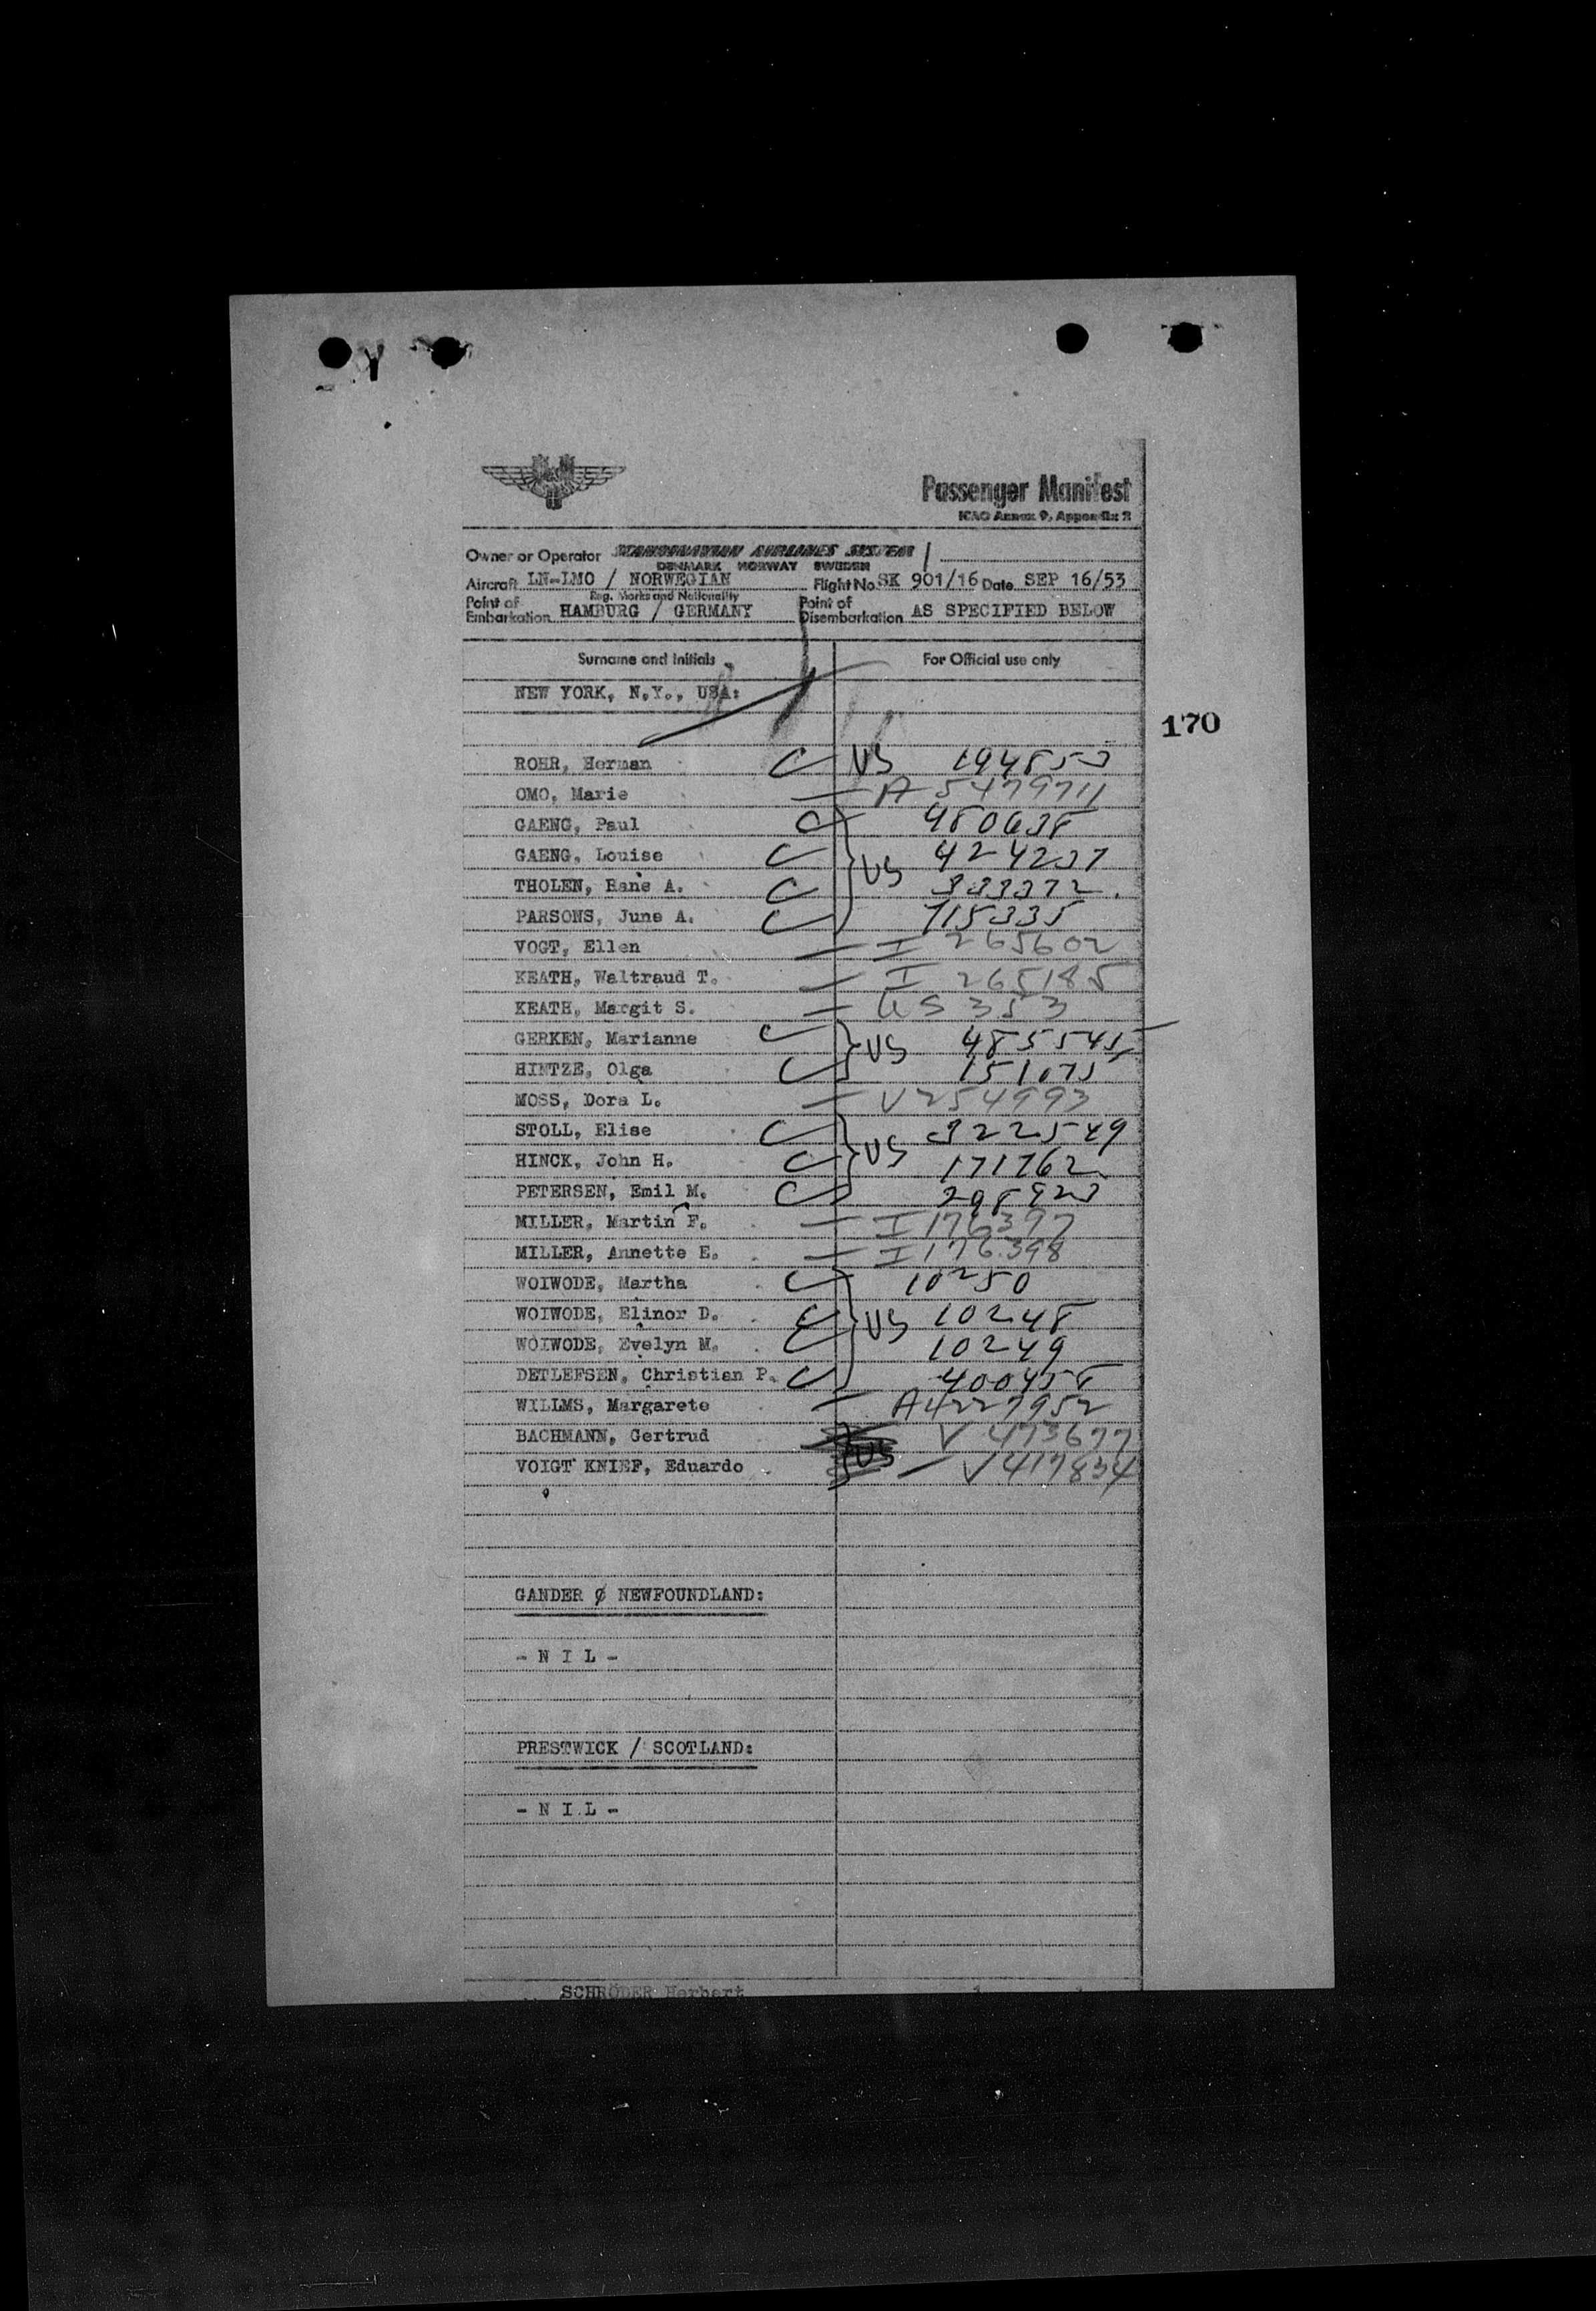 Passenger Manifest
ICAO Annex 9, Appendix 2
Owner or Operator SCANDINAVIAN AIRLINES SYSTEM
DENMARK NORWAY SWEDEN
Aircraft LN-LMO / NORWEGIAN Flight No SK 901/16 Date SEP 16/53
Reg. Marks and Nationality
Point of Embarkation HAMBURG / GERMANY Point of Disembarkation AS SPECIFIED BELOW
Surname and Initials For Official use only
NEW YORK, N.Y., USA:
170
ROHR, Herman C US 194853
OMO, Marie — A 5479711
GAENG, Paul C 480638
GAENG, Louise C 424237
US
THOLEN, Rane A. C 333372
PARSONS, June A. C 715335
VOGT, Ellen — I 265602
KEATH, Waltraud T. — I 265185
KEATH, Margit S. — US 353
GERKEN, Marianne C US 485545
HINTZE, Olga C 151075
MOSS, Dora L. — V 254993
STOLL, Elise C 322549
HINCK, John H. C US 171762
PETERSEN, Emil M. C 298923
MILLER, Martin F. — I 176397
MILLER, Annette E. — I 176398
WOIWODE, Martha C 10250
WOIWODE, Elinor D. C US 10248
WOIWODE, Evelyn M. C 10249
DETLEFSEN, Christian P. C 400458
WILLMS, Margarete — A4227952
BACHMANN, Gertrud V 473677
VOIGT KNIEF, Eduardo US — V 417834
GANDER / NEWFOUNDLAND:
- N I L -
PRESTWICK / SCOTLAND:
- N I L -
SCHRÖDER Herbert